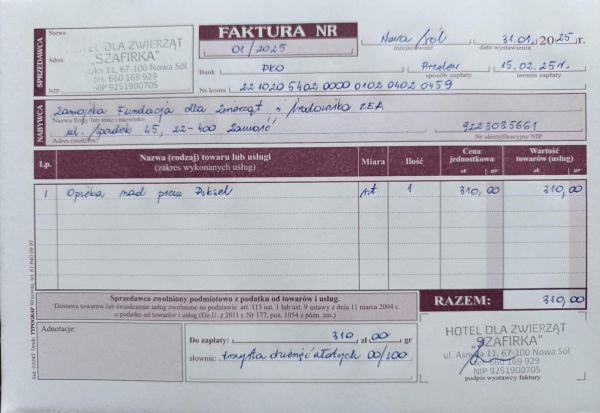 SPRZEDAWCA
Nazwa
HOTEL DLA ZWIERZĄT
"SZAFIRKA"
Adres
ul. Asnyka 11, 67-100 Nowa Sól
tel. 660 169 929
NIP 9251900705
FAKTURA NR
01/2025
Nowa Sól
miejscowość
31.01. 2025 r.
data wystawienia
Bank PKO
Przelew
sposób zapłaty
15.02.25r.
termin zapłaty
Nr konta 22 1020 5402 0000 0102 0402 0459
NABYWCA
Zamojska Fundacja dla Zwierząt i Środowiska ZEA
Nazwa firmy lub imię i nazwisko
ul. Spadek 45, 22-400 Zamość
9223035661
Adres (siedziba)
Nr identyfikacyjny NIP
Lp.
Nazwa (rodzaj) towaru lub usługi
(zakres wykonanych usług)
Miara
Ilość
Cena
jednostkowa
zł gr
Wartość
towarów (usług)
zł gr
1 Opieka nad psem Piksel szt 1 310,00 310,00
Sprzedawca zwolniony podmiotowo z podatku od towarów i usług.
Dostawa towarów lub świadczenie usług zwolnione na podstawie art. 113 ust. 1 lub ust. 9 ustawy z dnia 11 marca 2004 r.
o podatku od towarów i usług (Dz.U. z 2011 r Nr 177, poz. 1054 z późn. zm.)
RAZEM: 310,00
Adnotacje:
Do zapłaty: 310 zł 00 gr
słownie: trzysta dziesięć złotych 00/100
HOTEL DLA ZWIERZĄT
"SZAFIRKA"
ul. Asnyka 11, 67-100 Nowa Sól
tel. 660 169 929
NIP 9251900705
podpis wystawcy faktury